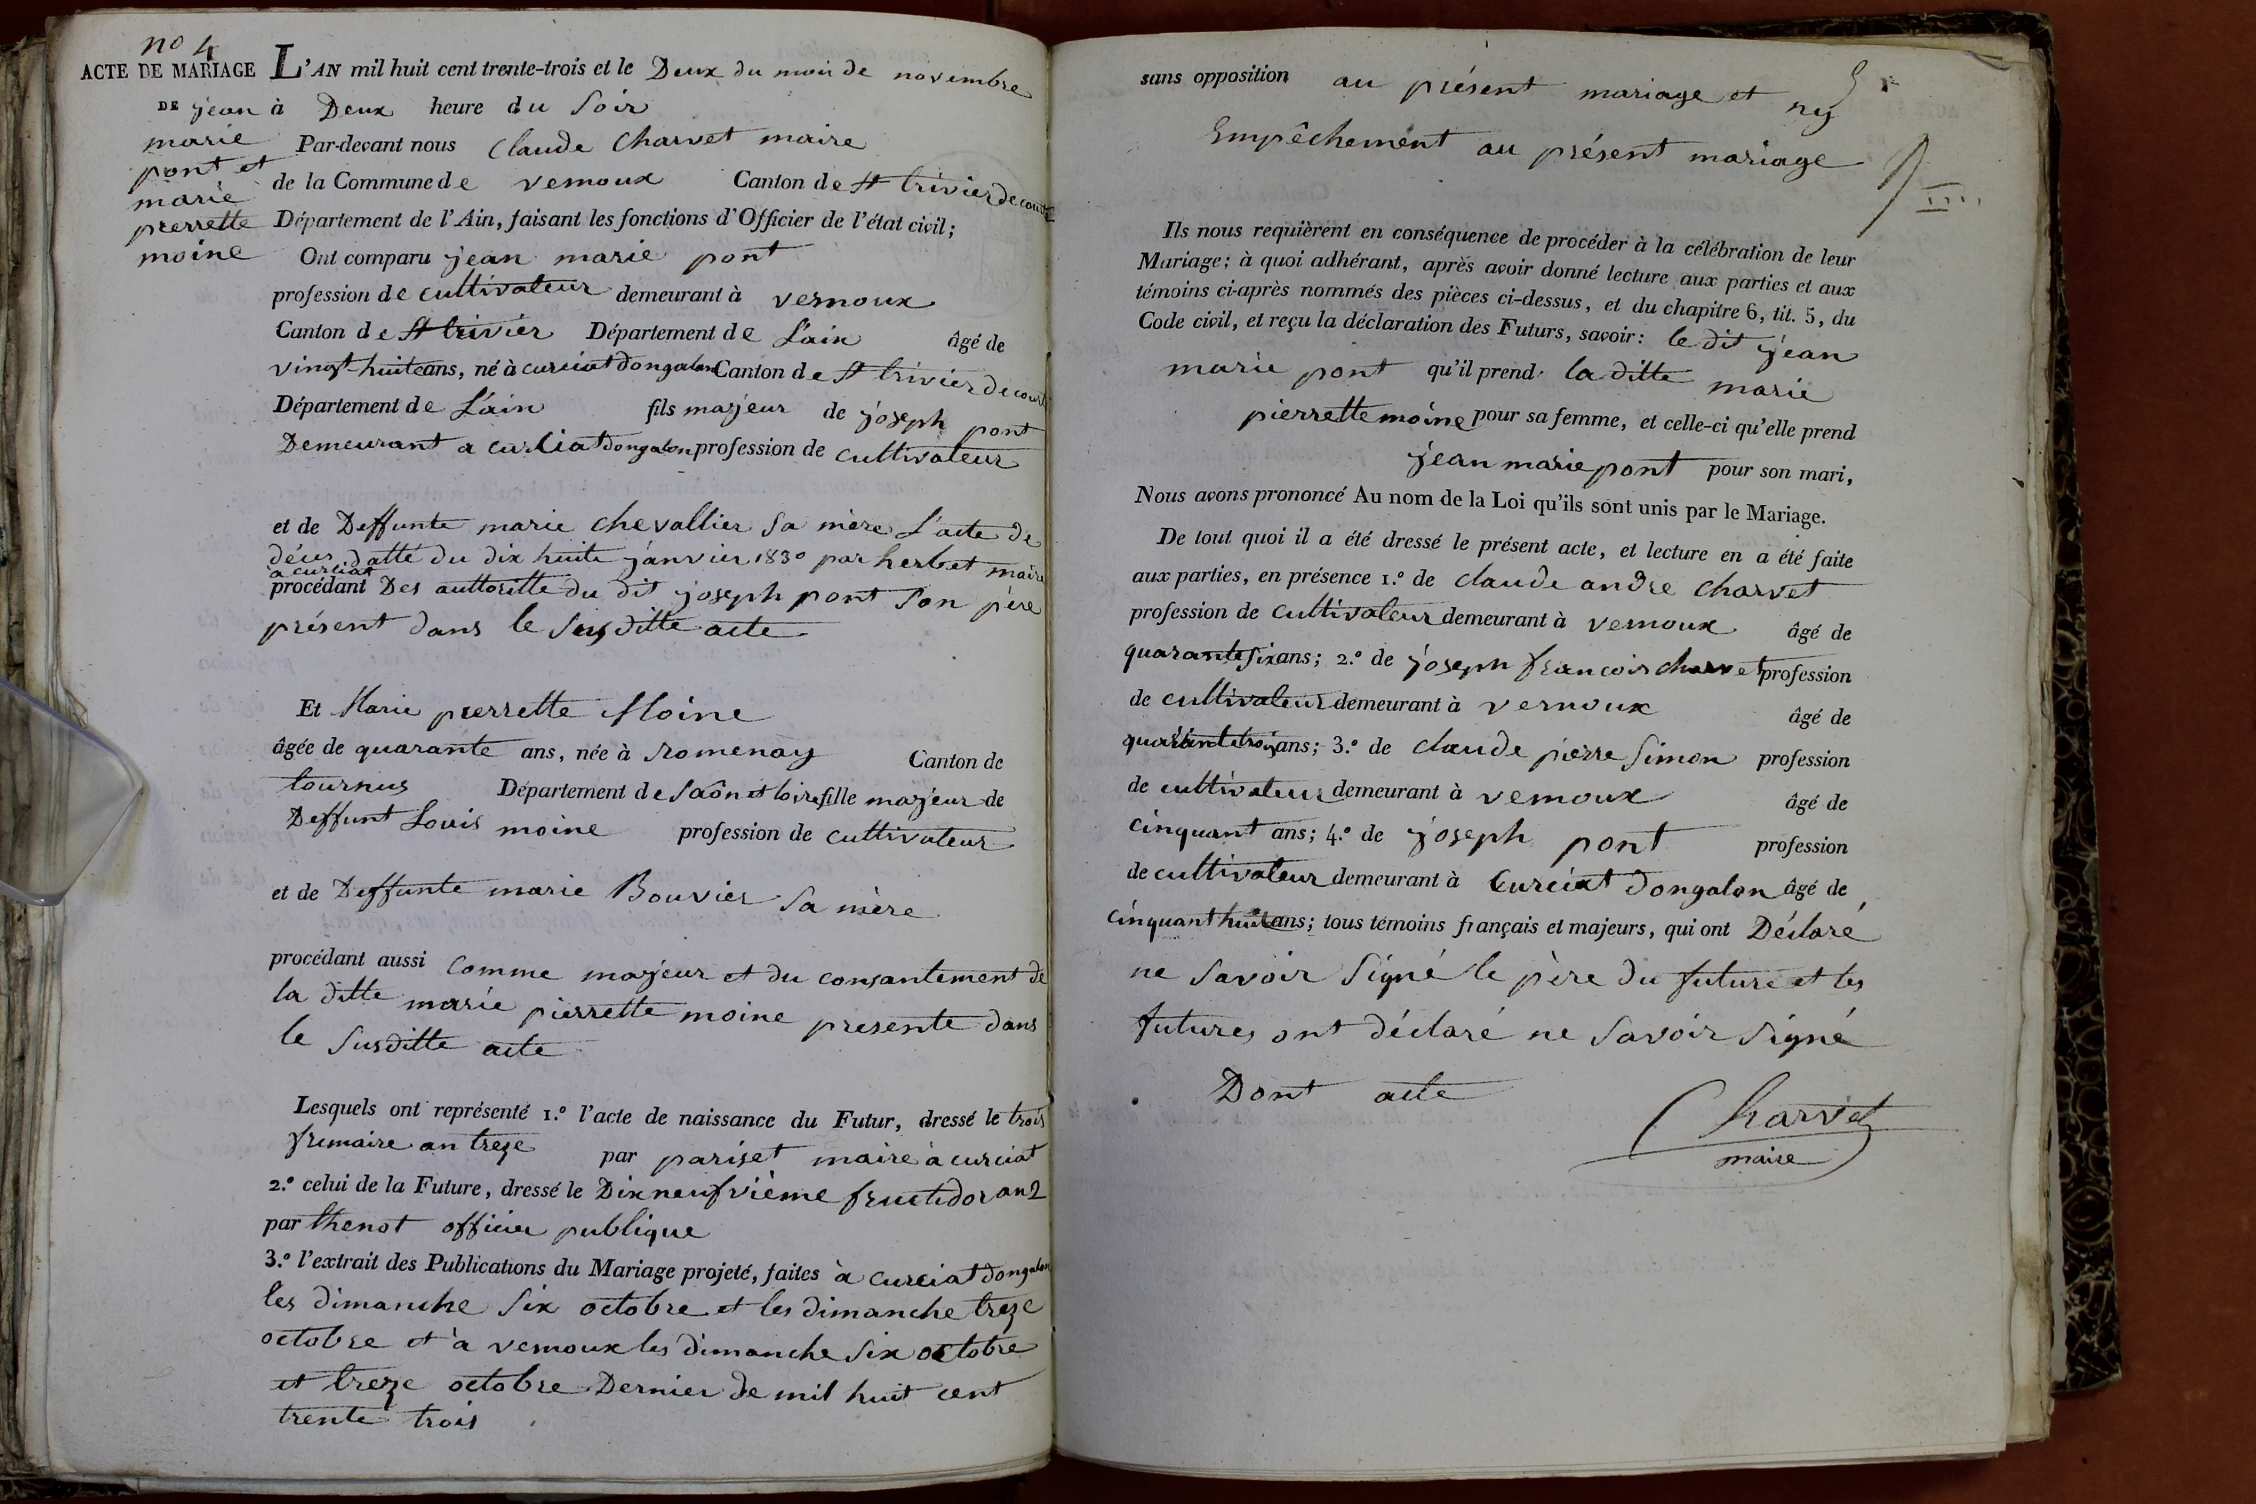 no 4
ACTE DE MARIAGE
DE jean
marie
pont et
marie
pierrette
moine
L'AN mil huit cent trente-trois et le Deux du mois de novembre
à Deux heure du soir
Par-devant nous Claude Charvet maire
de la Commune de vernoux Canton de St trivier de courte
Département de l'Ain, faisant les fonctions d'Officier de l'état civil;
Ont comparu jean marie pont
profession de cultivateur demeurant à vernoux
Canton de St trivier Département de L'ain âgé de
vingt-huit ans, né à curciat dongalon Canton de St trivier de courte
Département de L'ain fils majeur de joseph pont
Demeurant a curciat dongalon profession de cultivateur
et de Deffunte marie chevallier sa mère L'acte de
décès datté du dix huite janvier 1830 par herbet maire
a curciat
procédant Des auttoritte du dit joseph pont son père
présent dans le susditte acte
Et Marie pierrette Moine
âgée de quarante ans, née à romenay Canton de
tournus Département de Saôn et loire fille majeur de
Deffunt Louis moine profession de cultivateur
et de Deffunte marie Bouvier sa mère
procédant aussi comme majeur et du consantement de
la ditte marie pierrette moine presente dans
le susditte acte
Lesquels ont représenté 1.º l'acte de naissance du Futur, dressé le trois
frimaire an treze par pariset maire à curciat
2.º celui de la Future, dressé le Dix neufvième fructidor an 2
par thenot officier publique
3.º l'extrait des Publications du Mariage projeté, faites à curciat dongalon
les dimanche six octobre et les dimanche treze
octobre et à vernoux les dimanche six octobre
et treze octobre Dernier de mil huit cent
trente trois
sans opposition au présent mariage et ny
Empêchement au présent mariage
Ils nous requièrent en conséquence de procéder à la célébration de leur
Mariage; à quoi adhérant, après avoir donné lecture aux parties et aux
témoins ci-après nommés des pièces ci-dessus, et du chapitre 6, tit. 5, du
Code civil, et reçu la déclaration des Futurs, savoir: le dit jean
marie pont qu'il prend la ditte marie
pierrette moine pour sa femme, et celle-ci qu'elle prend
jean marie pont pour son mari,
Nous avons prononcé Au nom de la Loi qu'ils sont unis par le Mariage.
De tout quoi il a été dressé le présent acte, et lecture en a été faite
aux parties, en présence 1.º de claude andre charvet
profession de cultivateur demeurant à vernoux âgé de
quarante six ans; 2.º de joseph francois charvet profession
de cultivateur demeurant à vernoux âgé de
quarante trois ans; 3.º de claude pierre simon profession
de cultivateur demeurant à vernoux âgé de
cinquant ans; 4.º de joseph pont profession
de cultivateur demeurant à Curciat dongalon âgé de
cinquant huit ans; tous témoins français et majeurs, qui ont Déclaré
ne savoir signé le père du future et les
futures ont déclaré ne savoir signé
Dont acte
Charvet
maire